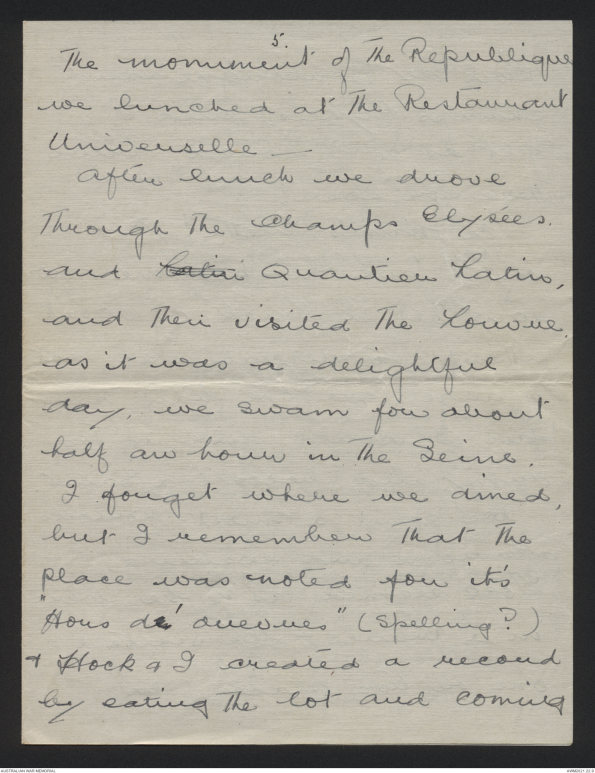 5.
The monument of the Republique
we lunched at the Restaurant
Universelle —
After lunch we drove
through the Champs Elysées.
and Latin Quartier Latin,
and then visited the Louvre.
as it was a delightful
day, we swam for about
half an hour in the Seine.
I forget where we dined,
but I remember that the
place was noted for it's
"Hors de' oeuvres" (Spelling?)
+ Hock & I created a record
by eating the lot and coming
AUSTRALIAN WAR MEMORIAL